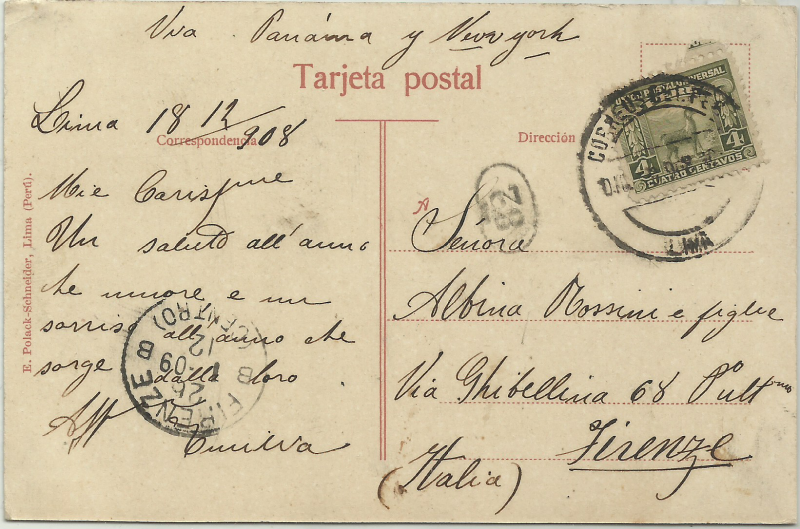 Via Panáma y Newyork
Tarjeta postal
Lima 18 12/908
Correspondencia
Dirección
Mie Carissme
Un saluto all'anno
che muore e un
sorriso all'anno che
sorge dalla loro
Aff
E. Polack-Schneider, Lima (Perú).
A
Señora
Albina Rossini e figlie
Via Ghibellina 68 Pult
Firenze
(Italia)
UNION POSTAL UNIVERSAL
4 4
CUATRO CENTAVOS
CORREOS
LIMA
FIRENZE
(CENTRO)
26
1-09
12